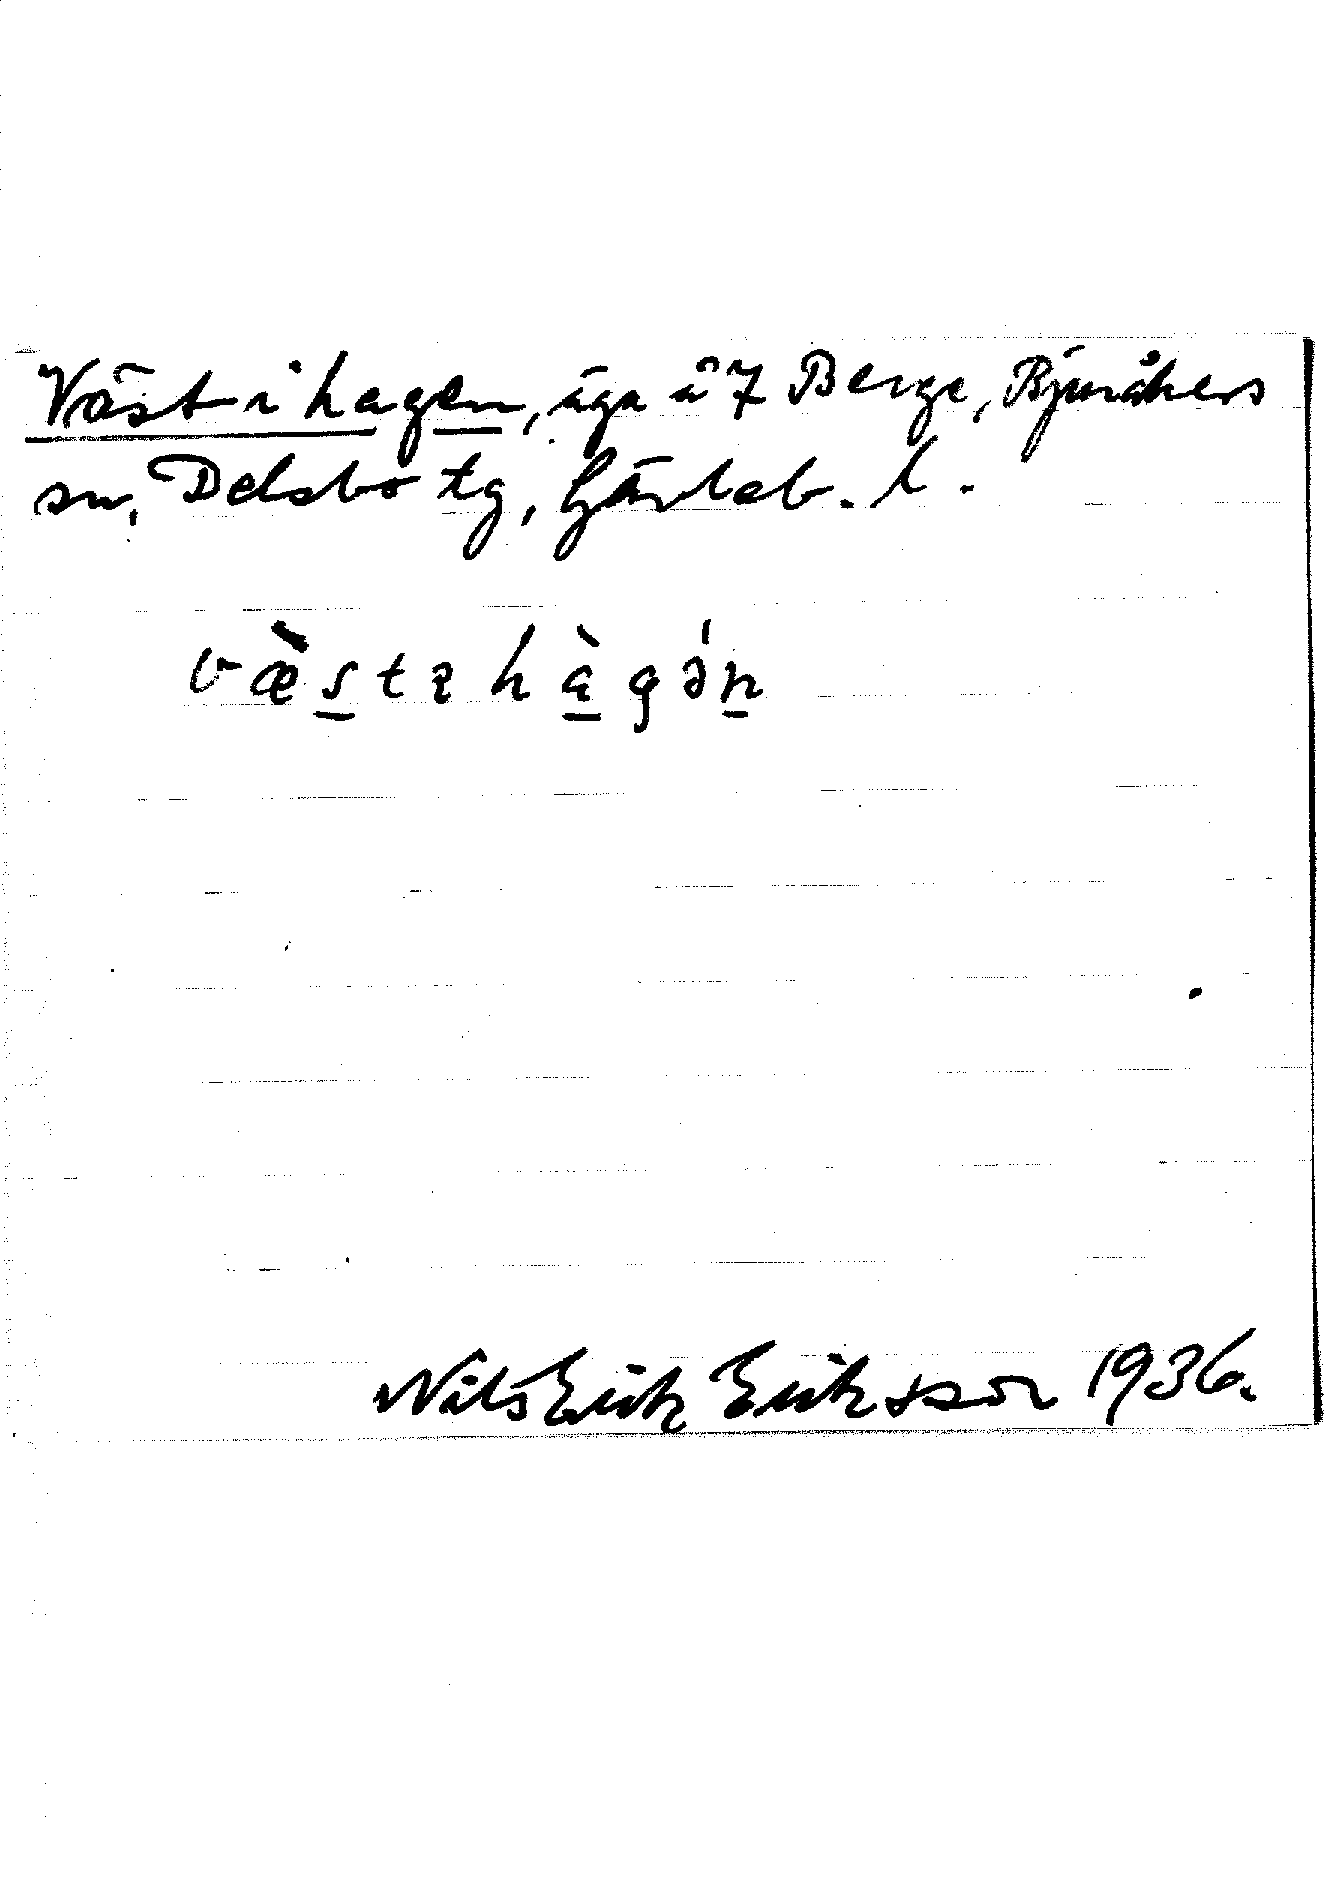 Väst i hagen, äga å 7 Berge, Bjuråkers
sn, Delsbo tg, Gävleb. l.
væ̀stɪhàgə́n
Nils Erik Eriksson 1936.